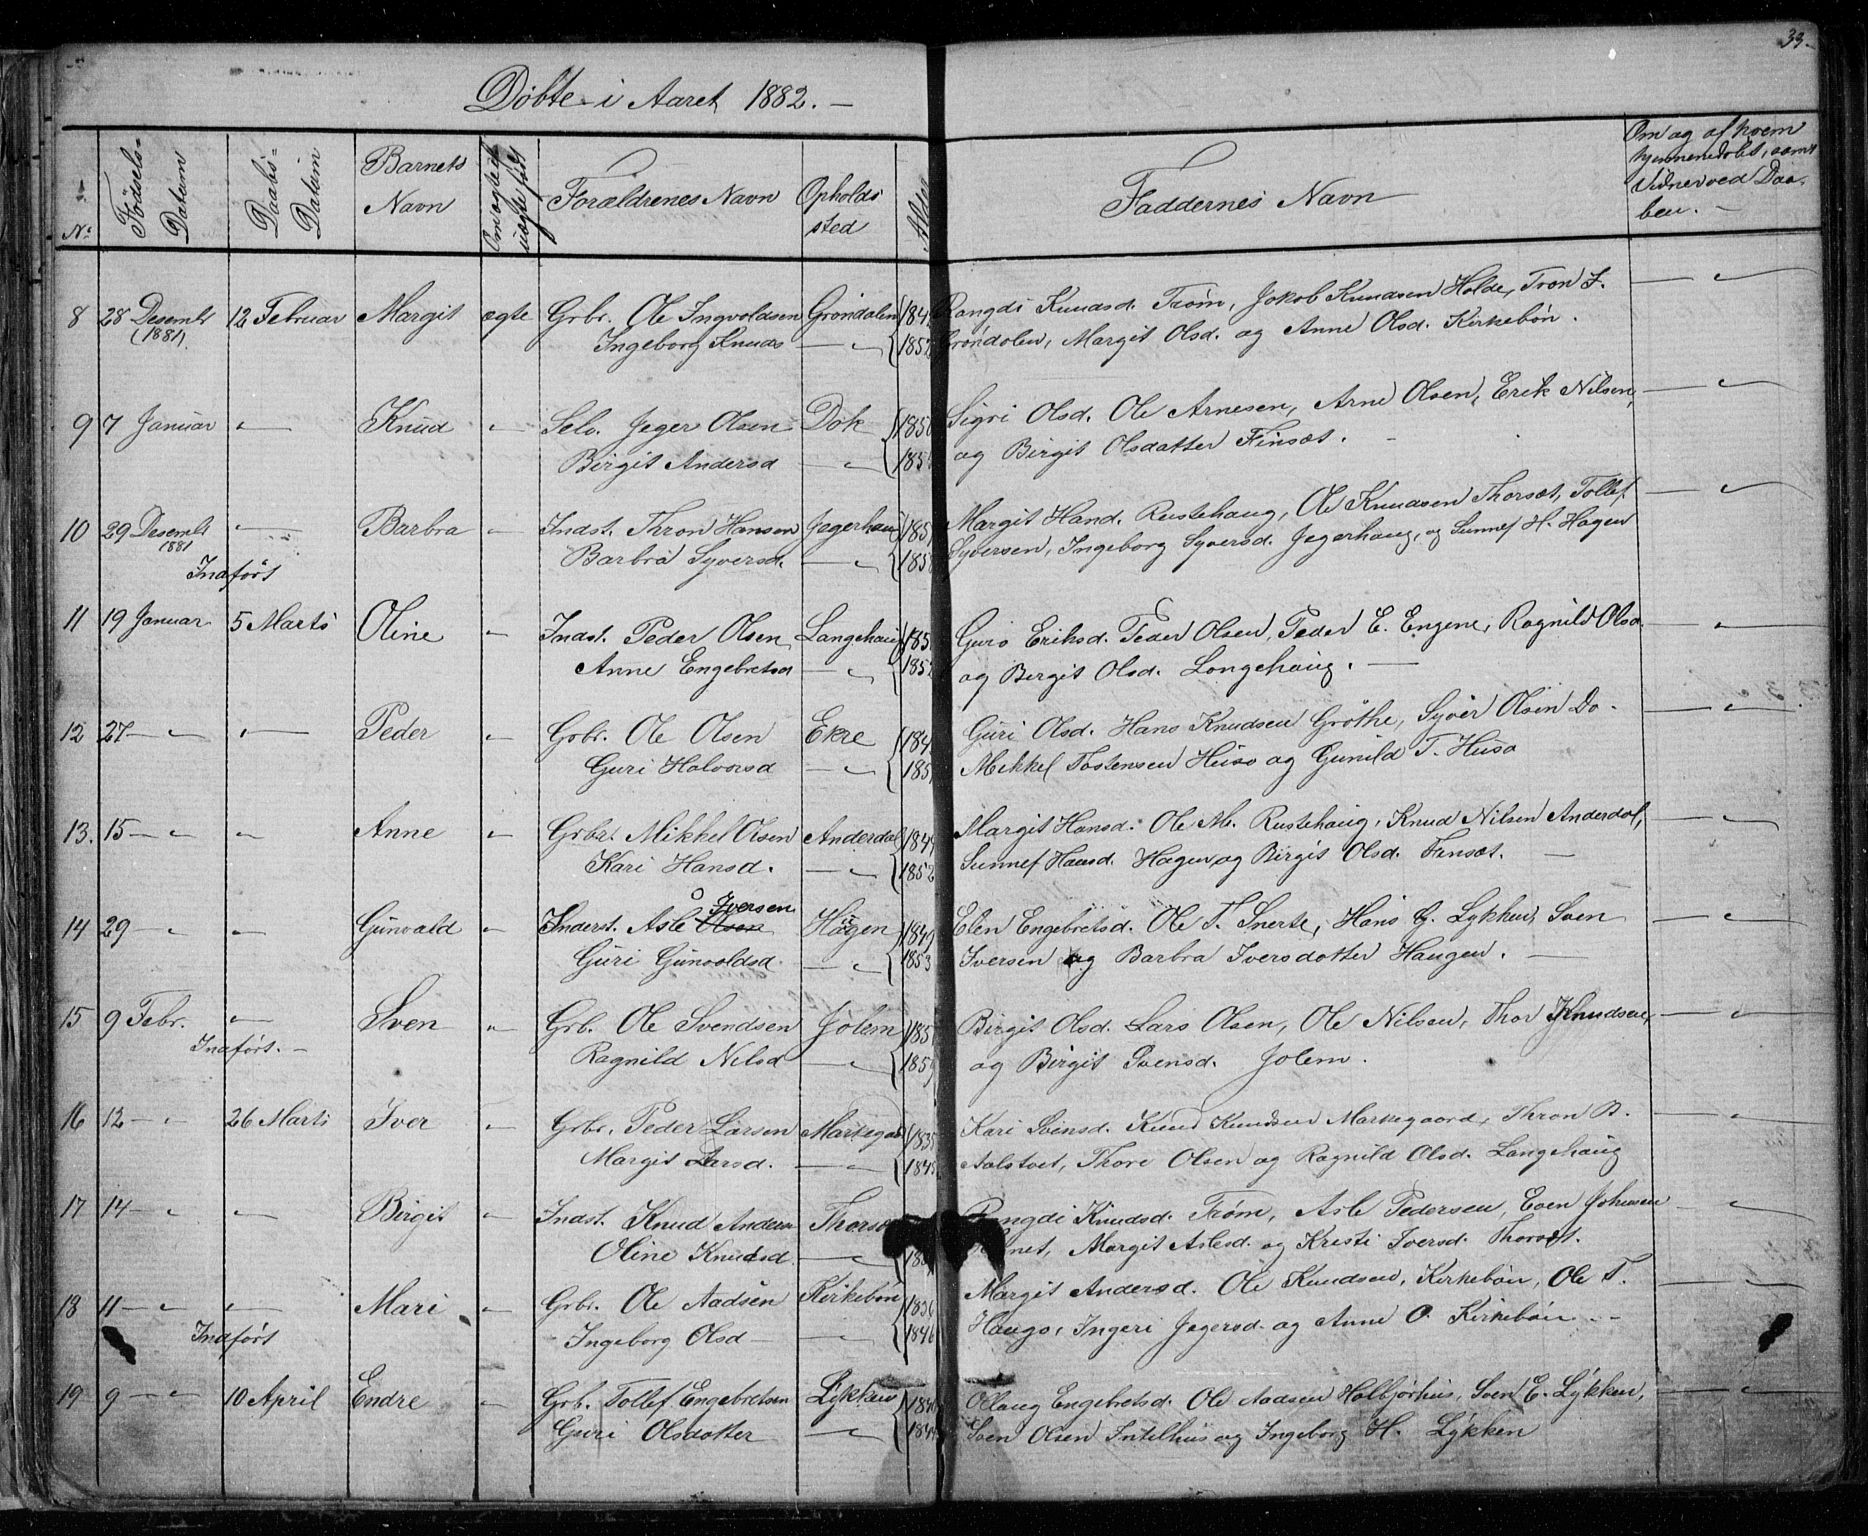 33.
Döbte i Aaret 1882. —
No.
Födsels-
Datum
Daabs-
Datum
Barnets
Navn
Om ægte el.
uægte født
Forældrenes Navn
Opholds
sted
Alder
Faddernes Navn
Om og af hvem
hjemmedøbt, samt
Vidner ved Daa-
ben. —
8 28 Desembr 12 Februar Margit ægte Grbr. Ole Ingvoldsen Gröndalen Rangdi Knudsd. Tröm, Jakob Knudsen Holde, Tron I.
(1881) Ingeborg Knuds — " 1852 Gröndolen, Margit Olsd. og Anne Olsd. Kirkebön.
9 7 Januar " — Knud " Selv. Jeger Olsen Dok Sigri Olsd. Ole Arnesen, Arne Olsen, Erik Nilsen,
Birgit Andersd — " og Birgit Olsdatter Finsæt. -
10 29 Desembr " — Barbra " Indst. Thron Hansen Jegerhaug Margit Hansd. Rustehaug, Ole Knudsen Thorsæt, Tollef
1881 Barbra Syversd. — " Syversen, Ingeborg Syversd. Jegerhaug, og Sunnef H. Hagen
Indført
11 19 Januar 5 Marts Oline " Indst. Peder Olsen Langehaug Guro Eriksd. Peder Olsen, Peder E. Engene, Ragnild Olsd.
Anne Engebretsd — " 1852 og Birgit Olsd. Longehaug. —
12 27 — " " — Peder " Grbr. Ole Olsen Ekre Guri Olsd. Hans Knudsen Gröthe, Syver Olsen Do.
Guri Halvorsd — " Mikkel Tostensen Huso og Gunild T. Huso
13. 15 — " " Anne " Grbr. Mikkel Olsen Anderdal 1844 Margit Hansd. Ole M. Rustehaug, Knud Nilsen Anderdal,
Kari Hansd. — " 1852 Sunnef Hansd. Hagen og Birgit Olsd. Finsæt. —
14 29 " " Gunvald " Inderst. Asle Olsen Iversen Hagen 1849 Elen Engebretsd. Ole T. Snerte, Hans G. Lykhus, Sven
Guri Gunvoldsd. — " 1853 Iversen og Barbra Iversdotter Haugen. —
15 9 Febr. " — Sven " Grb. Ole Svendsen Jolem Birgit Olsd. Lars Olsen, Ole Nilsen, Thor Knudsen,
Indført. — Ragnild Nilsd — " og Birgit Svensd. Jolem.
16 12 — " 26 Marts Iver " Grbr. Peder Larsen Markegard 1835 Kari Svensd. Knud Knudsen Markegaard, Thron B.
Margit Larsd. — " Aalstveit, Thore Olsen og Ragnild Olsd. Langehaug
17 14 — " " — Birgit " Indst. Knud Anders Thorsæt Rangdi Knudsd. Tröm, Asle Pedersen, Even Johansen
Oline Knudsd. — " Margit Aslesd. og Kristi Iversd. Thorsæt.
18 11 — " " — Mari " Grbr. Ole Aadsen Kirkebön 1836 Margit Andersd. Ole Knudsen, Kirkebön, Ole T.
Indført Ingeborg Olsd — — " 1846 Haugo, Ingeri Jegersd. og Anne O. Kirkebön. —
19 9 — " 10 April Endre " Grb. Tollef Engebretsen Lykken 1840 Ollaug Engebretsd. Ole Aadsen Halbjørhus, Sven E. Lykken,
Guri Olsdotter — " 1844 Sven Olsen Intelhus og Ingeborg H. Lykken